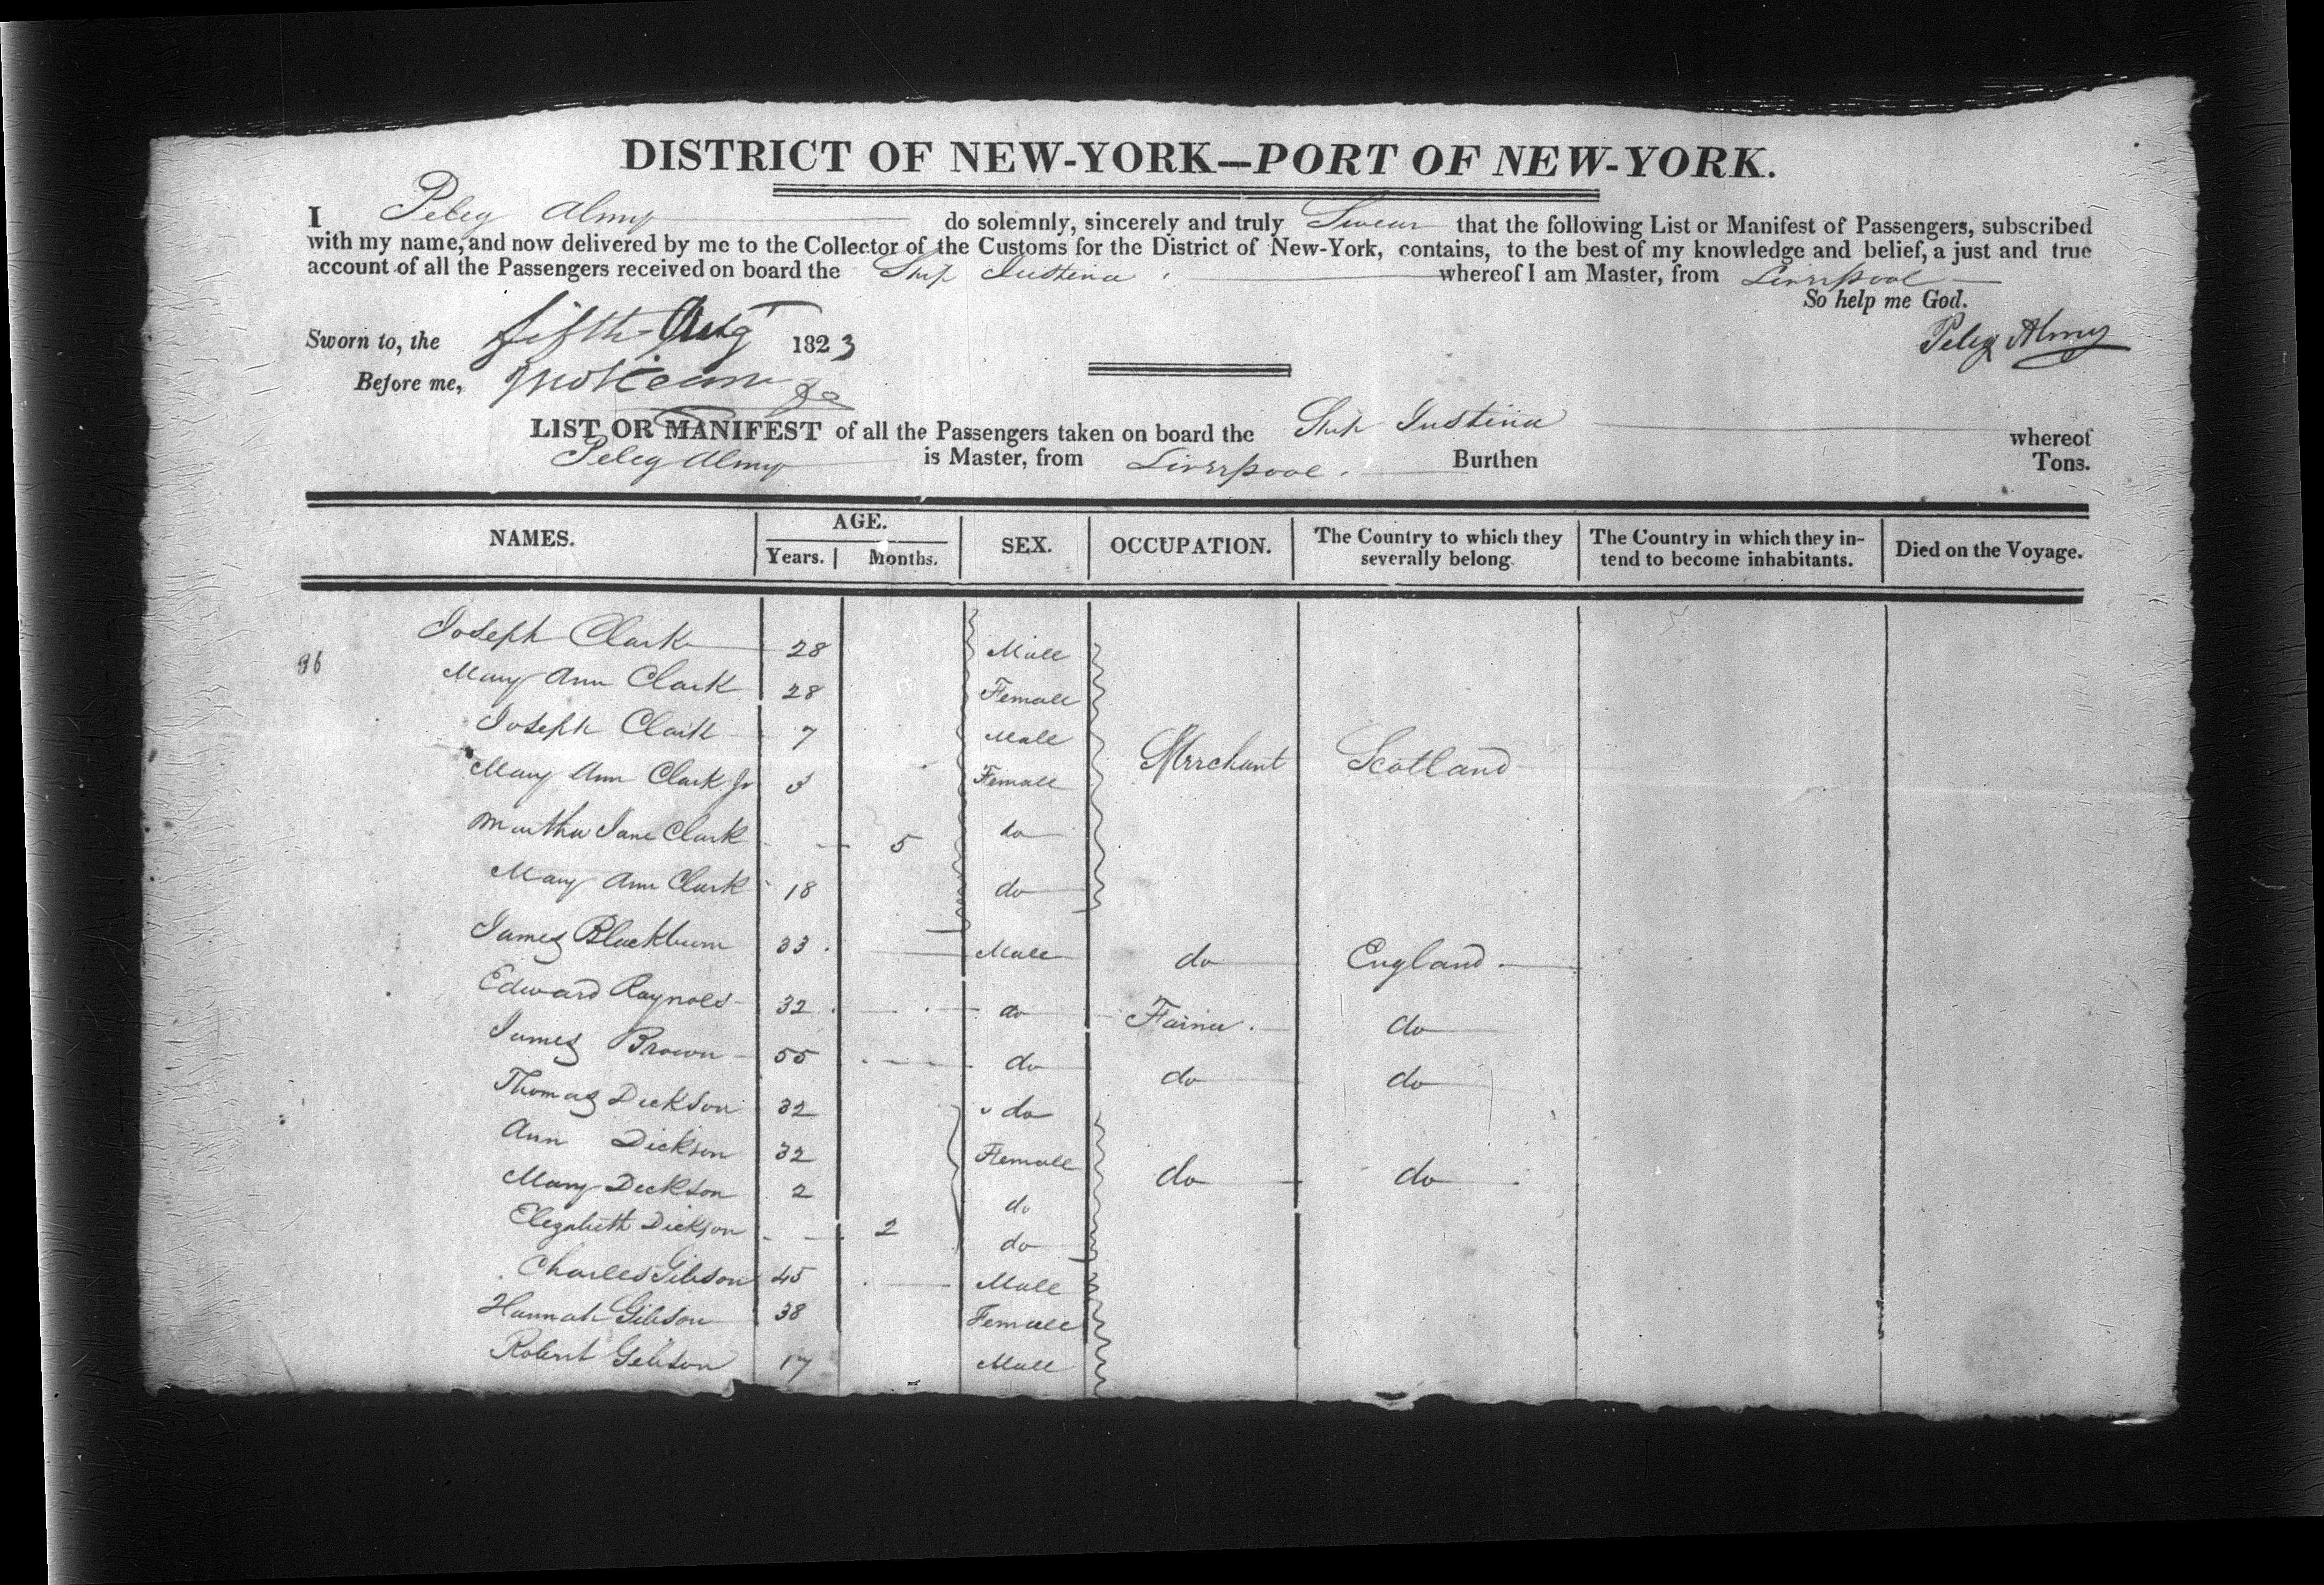 DISTRICT OF NEW-YORK—PORT OF NEW-YORK.
I Peleg Almy do solemnly, sincerely and truly Swear that the following List or Manifest of Passengers, subscribed
with my name, and now delivered by me to the Collector of the Customs for the District of New-York, contains, to the best of my knowledge and belief, a just and true
account of all the Passengers received on board the Ship Justina whereof I am Master, from Liverpool
So help me God.
Sworn to, the fifth Augt 1823
Peleg Almy
Before me,
LIST OR MANIFEST of all the Passengers taken on board the Ship Justina whereof
Peleg Almy is Master, from Liverpool. Burthen Tons.
NAMES. AGE. Years. Months. SEX. OCCUPATION. The Country to which they severally belong. The Country in which they intend to become inhabitants. Died on the Voyage.
Joseph Clark 28 Male
96
Mary Ann Clark 28 Female
Joseph Clark 7 Male
Merchant Scotland
Mary Ann Clark Jr 3 Female
Martha Jane Clark 5 do
Mary Ann Clark 18 do
James Blackburn 33 Male do England
Edward Raynold 32 do Farmer do
James Brown 55 do do do
Thomas Dickson 32 do
Ann Dickson 32 Female
do do
Mary Dickson 2 do
Elizabeth Dickson 2 do
Charles Gibson 45 Male
Hannah Gibson 38 Female
Robert Gibson 17 Male